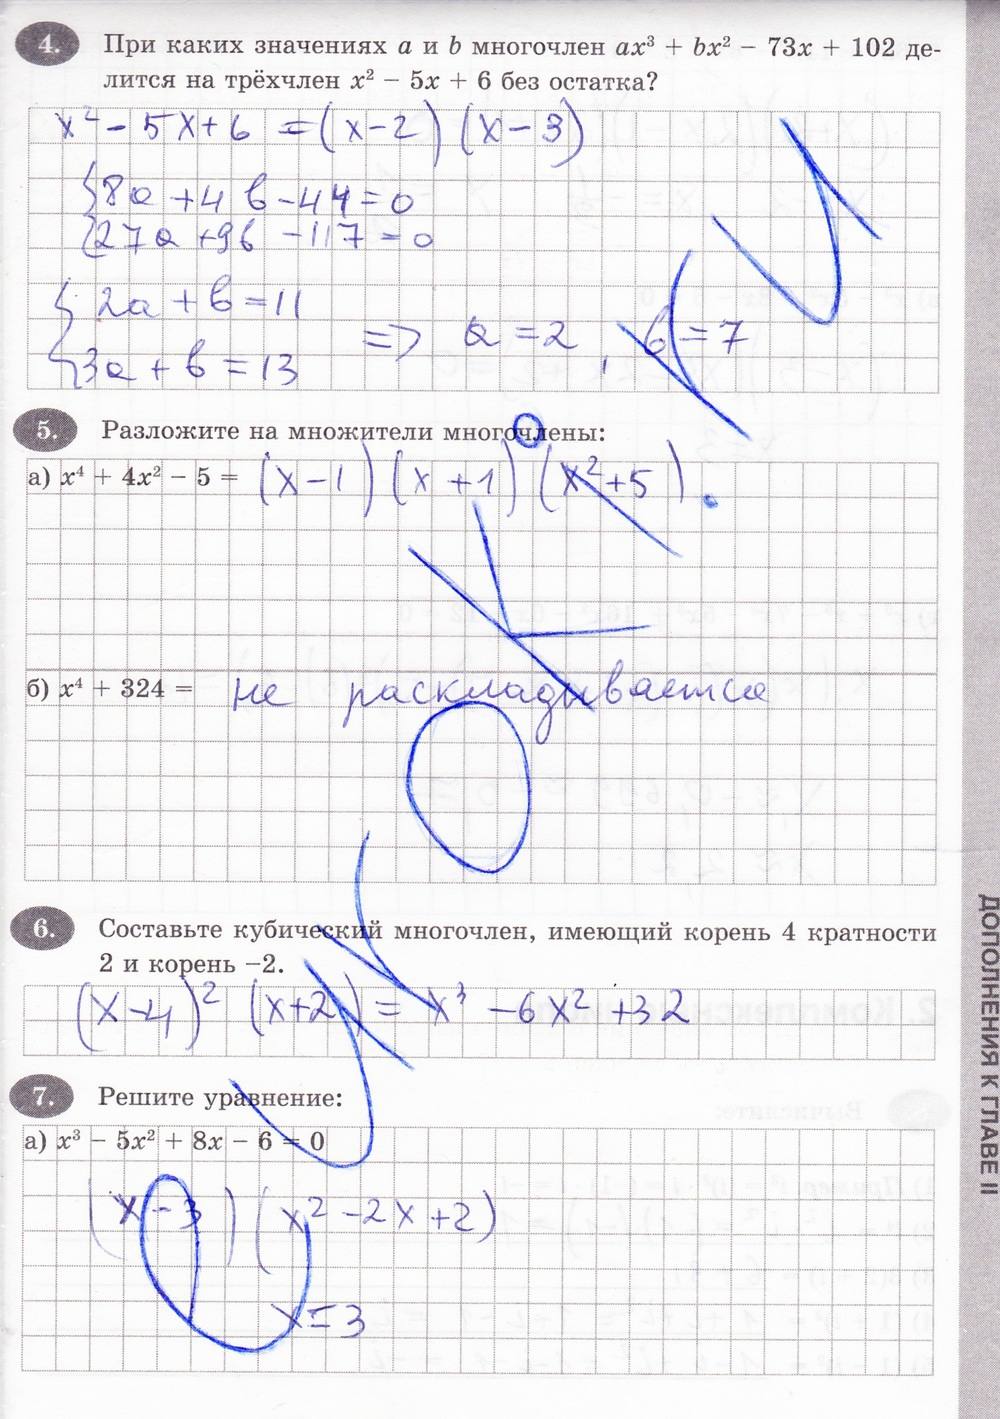 4. При каких значениях a и b многочлен ax³ + bx² − 73x + 102 де-
лится на трёхчлен x² − 5x + 6 без остатка?
x² − 5x + 6 = (x − 2) (x − 3)
{8a + 4b − 44 = 0
{27a + 9b − 117 = 0
{2a + b = 11
{3a + b = 13
=> a = 2, b = 7
5. Разложите на множители многочлены:
а) x⁴ + 4x² − 5 = (x − 1) (x + 1) (x² + 5).
б) x⁴ + 324 = не раскладывается
6. Составьте кубический многочлен, имеющий корень 4 кратности
2 и корень −2.
(x − 4)² (x + 2) = x³ − 6x² + 32
7. Решите уравнение:
а) x³ − 5x² + 8x − 6 = 0
(x − 3) (x² − 2x + 2)
x = 3
ДОПОЛНЕНИЯ К ГЛАВЕ II